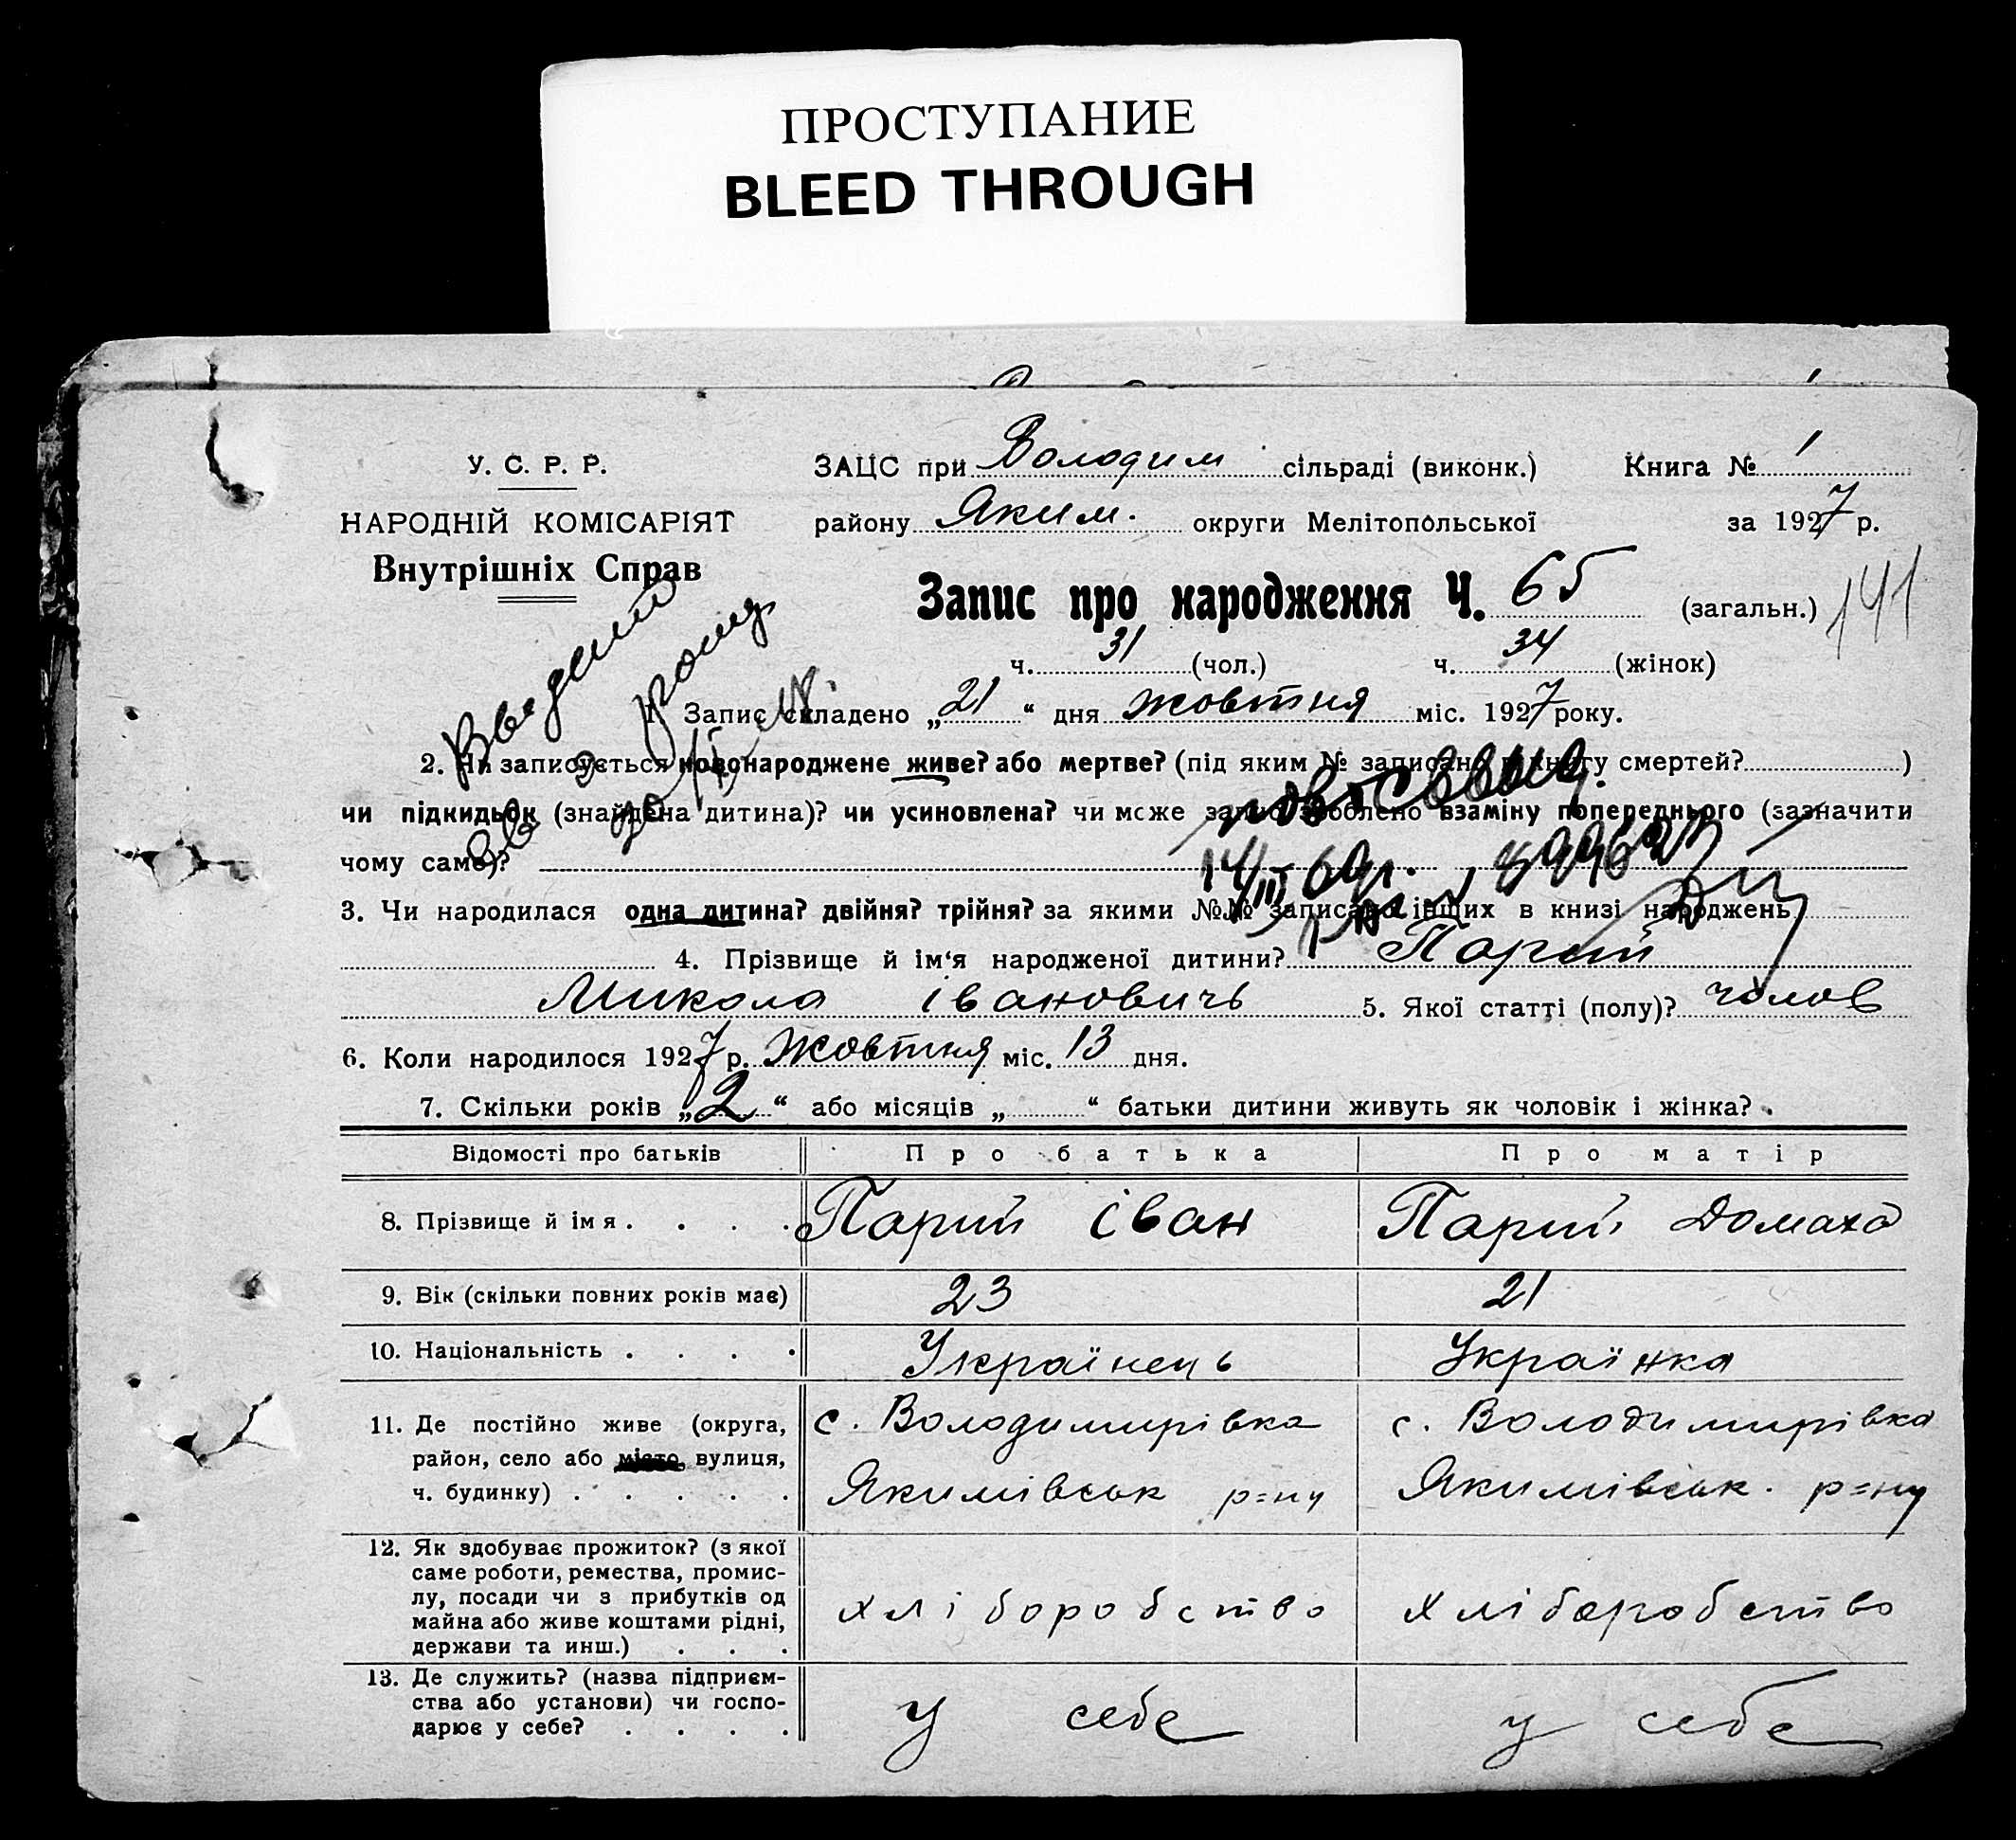 ПРОСТУПАНИЕ
BLEED THROUGH
У. С. Р. Р.
НАРОДНІЙ КОМІСАРІЯТ
Внутрішніх Справ
ЗАЦС при Володим сільраді (виконк.) Книга № 1
району Яким. округи Мелітопольської за 1927 р.
Запис про народження Ч. 65 (загальн.) 141
ч. 31 (чол.) ч. 34 (жінок)
1. Запис складено „21“ дня жовтня міс. 1927 року.
2. Чи записується новонароджене живе? або мертве? (під яким № записано в книгу смертей? )
чи підкидьок (знайдена дитина)? чи усиновлена? чи може запис зроблено взаміну попереднього (зазначити
чому саме)?
14/III 69г.
3. Чи народилася одна дитина? двійня? трійня? за якими №№ записано інших в книзі народжень
4. Прізвище й ім‘я народженої дитини? Парий
Микола Івановичь 5. Якої статті (полу)? чолов
6. Коли народилося 1927 р. Жовтня міс. 13 дня.
7. Скільки років „2“ або місяців „ “ батьки дитини живуть як чоловік і жінка?
Відомості про батьків Про батька Про матір
8. Прізвище й ім я . . . . Парий Іван Парий Домаха
9. Вік (скільки повних років має) 23 21
10. Національність . . . . Українець Українка
11. Де постійно живе (округа, с. Володимирівка с. Володимирівка
район, село або місто, вулиця,
ч. будинку) . . . . . Якимівськ р=ну Якимівськ. р=ну
12. Як здобуває прожиток? (з якої
саме роботи, ремества, промис-
лу, посади чи з прибутків од хліборобство хліборобство
майна або живе коштами рідні,
держави та инш.) . . .
13. Де служить? (назва підприєм-
ства або установи) чи госпо- у себе у себе
дарює у себе? . . . .